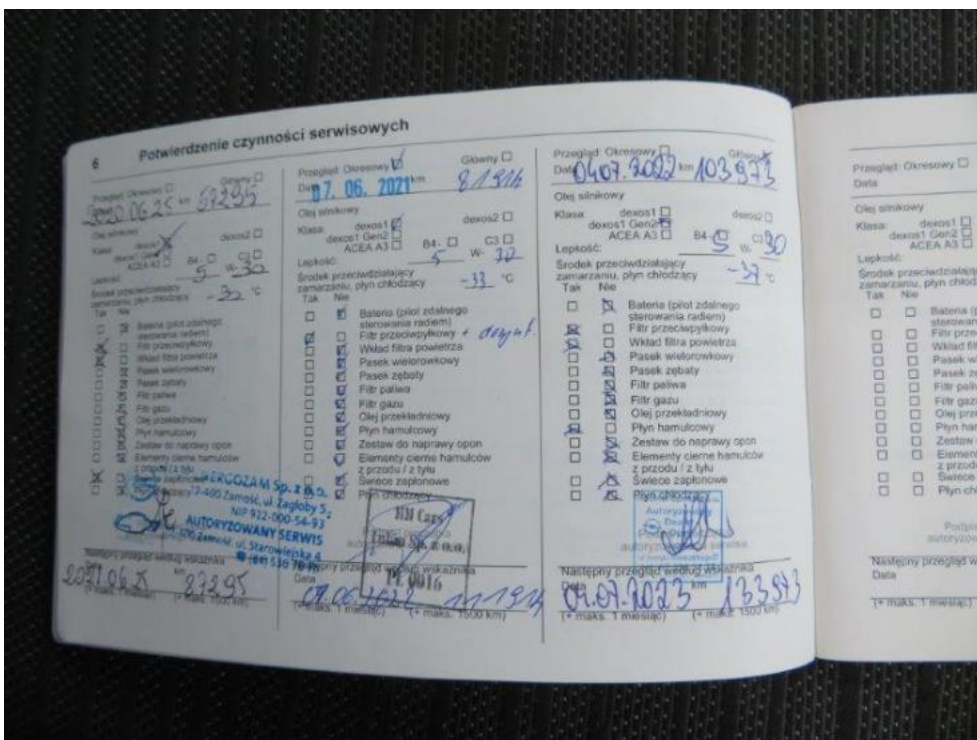 6 Potwierdzenie czynności serwisowych
Przegląd: Okresowy Główny
2020.06.25 km 57295
Olej silnikowy
Klasa: dexos1 dexos2
dexos1 Gen2
ACEA A3 B4- C3
Lepkość: 5 W- 30
Środek przeciwdziałający
zamarzaniu, płyn chłodzący -32 °C
Tak Nie
Bateria (pilot zdalnego
sterowania radiem)
Filtr przeciwpyłkowy
Wkład filtra powietrza
Pasek wielorowkowy
Pasek zębaty
Filtr paliwa
Filtr gazu
Olej przekładniowy
Płyn hamulcowy
Zestaw do naprawy opon
Elementy cierne hamulców
z przodu / z tyłu
Świece zapłonowe
Sp. z o.o.
22-400 Zamość, ul. Zagłoby 5
NIP 922-000-54-93
AUTORYZOWANY SERWIS
Zamość, ul. Starowiejska 4
Następny przegląd według wskaźnika
2021.06.25 km 87295
(+ maks. 1 miesiąc) (+ maks. 1500 km)
Przegląd: Okresowy Główny
Data 07. 06. 2021 km 81914
Olej silnikowy
Klasa: dexos1 dexos2
dexos1 Gen2
ACEA A3 B4- C3
Lepkość: 5 W- 30
Środek przeciwdziałający
zamarzaniu, płyn chłodzący -33 °C
Tak Nie
Bateria (pilot zdalnego
sterowania radiem)
Filtr przeciwpyłkowy +
Wkład filtra powietrza
Pasek wielorowkowy
Pasek zębaty
Filtr paliwa
Filtr gazu
Olej przekładniowy
Płyn hamulcowy
Zestaw do naprawy opon
Elementy cierne hamulców
z przodu / z tyłu
Świece zapłonowe
Płyn chłodzący
Cars
Sp. z o.o.
Następny przegląd według wskaźnika
Data 07.06.2022 111914
(+ maks. 1 miesiąc) (+ maks. 1500 km)
Przegląd: Okresowy Główny
Data 04.07.2022 km 103973
Olej silnikowy
Klasa: dexos1 dexos2
dexos1 Gen2
ACEA A3 B4- C3
Lepkość: 5 W- 30
Środek przeciwdziałający
zamarzaniu, płyn chłodzący -37 °C
Tak Nie
Bateria (pilot zdalnego
sterowania radiem)
Filtr przeciwpyłkowy
Wkład filtra powietrza
Pasek wielorowkowy
Pasek zębaty
Filtr paliwa
Filtr gazu
Olej przekładniowy
Płyn hamulcowy
Zestaw do naprawy opon
Elementy cierne hamulców
z przodu / z tyłu
Świece zapłonowe
Płyn chłodzący
Następny przegląd według wskaźnika
Data 04.07.2023 km 133973
(+ maks. 1 miesiąc) (+ maks. 1500 km)
Przegląd: Okresowy
Data
Olej silnikowy
Klasa: dexos1
dexos1 Gen2
ACEA A3
Lepkość:
Środek przeciwdziałający
zamarzaniu, płyn chłodzący
Tak Nie
Bateria (
Filtr
Wkład
Pasek
Pasek
Filtr
Filtr
Olej
Płyn
Zestaw
Elementy
z przodu
Świece
Płyn
Następny przegląd
Data
(+ maks. 1 miesiąc)